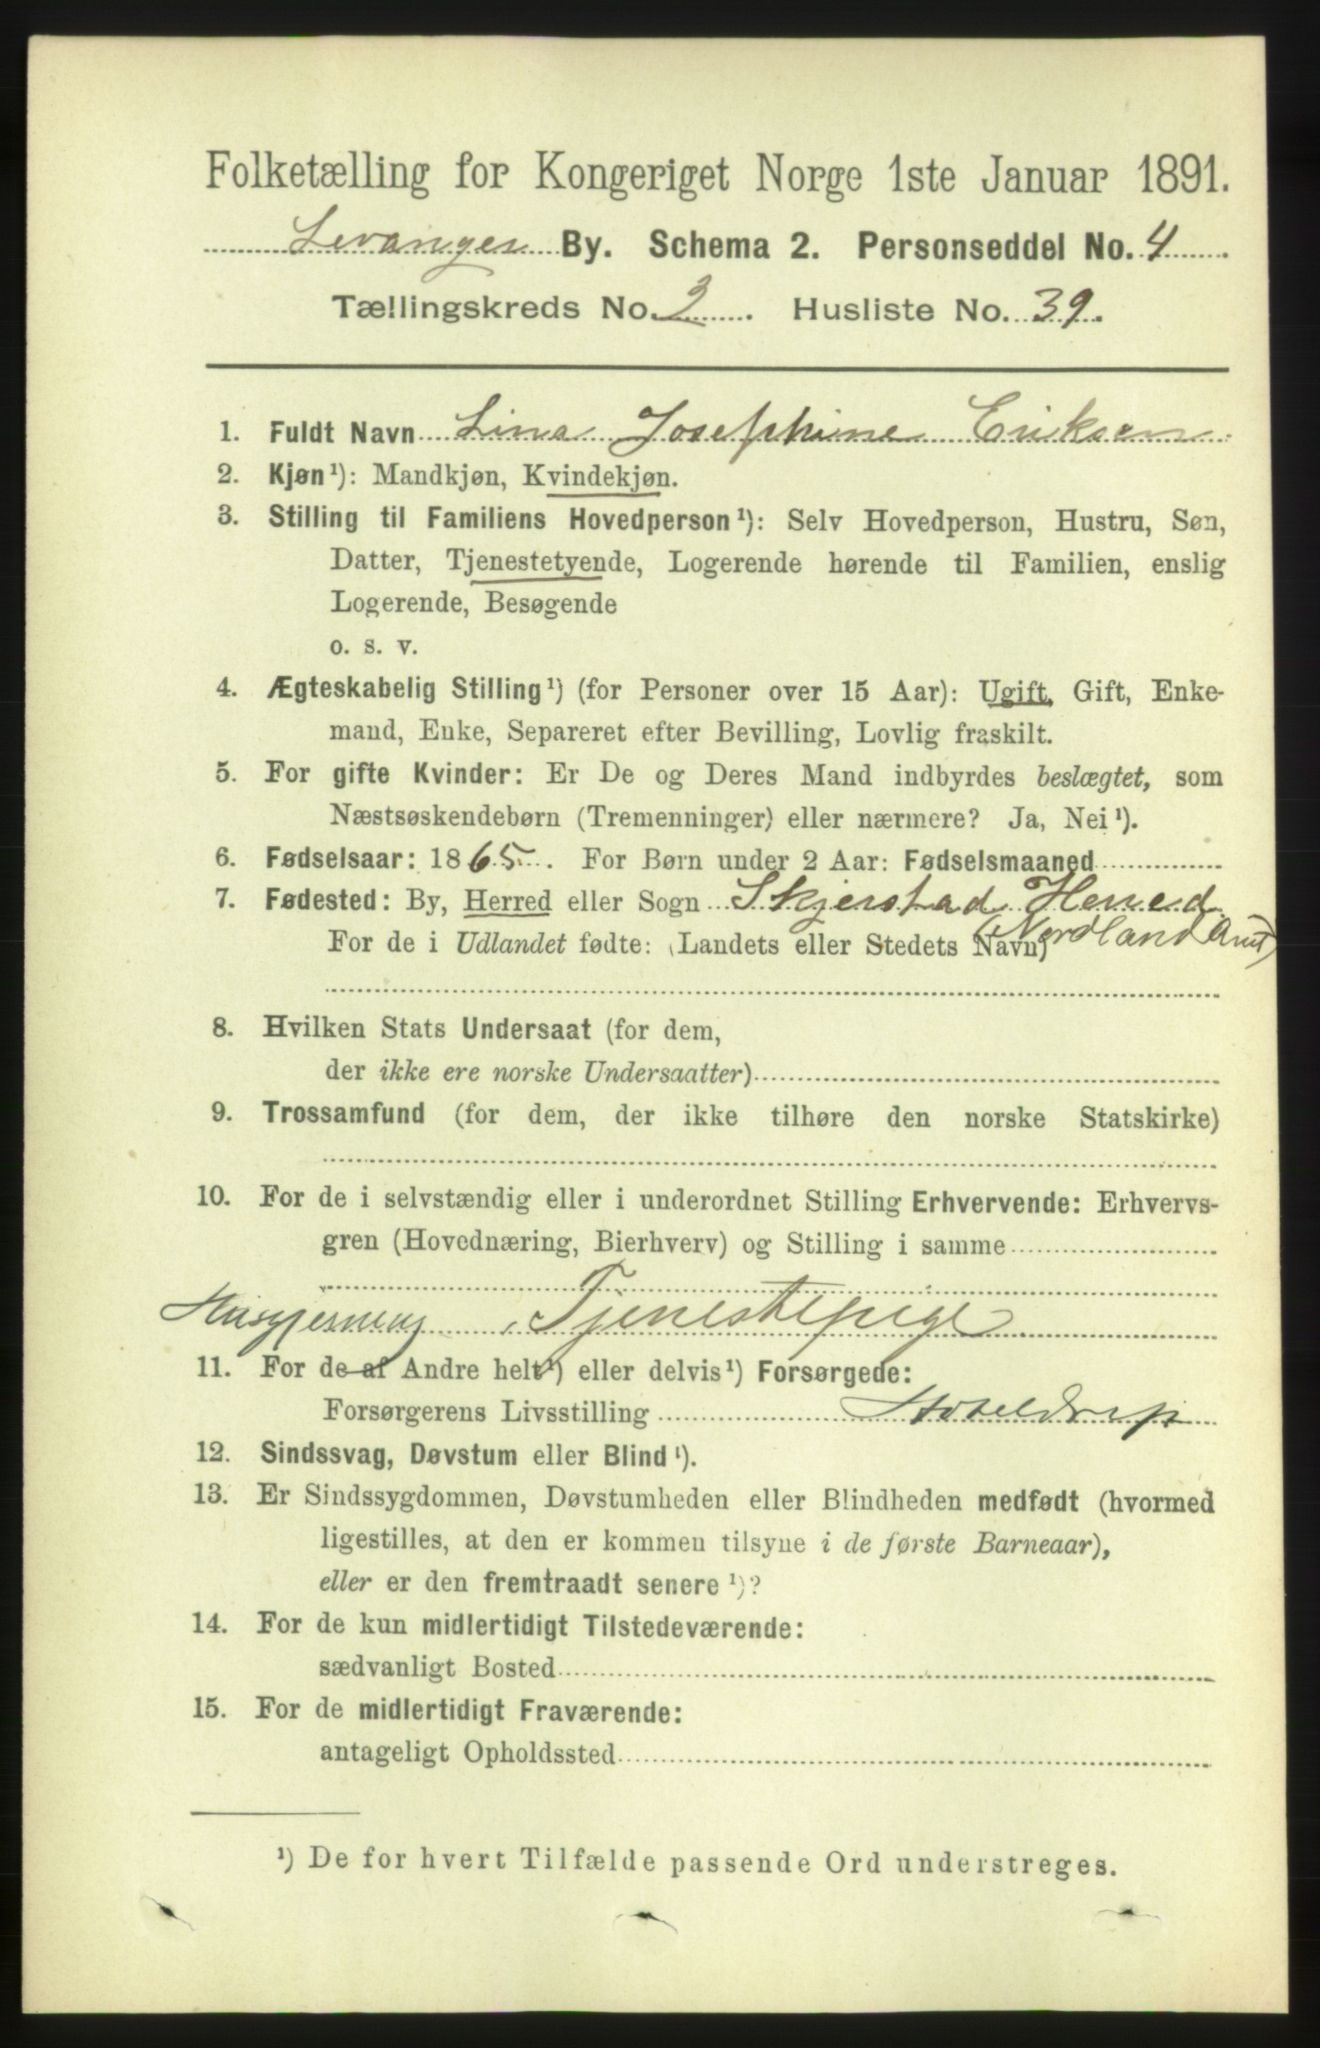 Folketælling for Kongeriget Norge 1ste Januar 1891.
Levanger By. Schema 2. Personseddel No. 4
Tællingskreds No. 2. Husliste No. 39.
1. Fuldt Navn Lina Josephine Eriksen
2. Kjøn¹): Mandkjøn, Kvindekjøn.
3. Stilling til Familiens Hovedperson¹): Selv Hovedperson, Hustru, Søn,
Datter, Tjenestetyende, Logerende hørende til Familien, enslig
Logerende, Besøgende
o. s. v.
4. Ægteskabelig Stilling¹) (for Personer over 15 Aar): Ugift, Gift, Enke-
mand, Enke, Separeret efter Bevilling, Lovlig fraskilt.
5. For gifte Kvinder: Er De og Deres Mand indbyrdes beslægtet, som
Næstsøskendebørn (Tremenninger) eller nærmere? Ja, Nei¹).
6. Fødselsaar: 1865. For Børn under 2 Aar: Fødselsmaaned
7. Fødested: By, Herred eller Sogn Skjerstad Herred
(Nordland Amt)
For de i Udlandet fødte: (Landets eller Stedets Navn)
8. Hvilken Stats Undersaat (for dem,
der ikke ere norske Undersaatter)
9. Trossamfund (for dem, der ikke tilhøre den norske Statskirke)
10. For de i selvstændig eller i underordnet Stilling Erhvervende: Erhvervs-
gren (Hovednæring, Bierhverv) og Stilling i samme
Husgjerning, Tjenestepige
11. For de af Andre helt¹) eller delvis¹) Forsørgede:
Forsørgerens Livsstilling
12. Sindssvag, Døvstum eller Blind¹).
13. Er Sindssygdommen, Døvstumheden eller Blindheden medfødt (hvormed
ligestilles, at den er kommen tilsyne i de første Barneaar),
eller er den fremtraadt senere¹)?
14. For de kun midlertidigt Tilstedeværende:
sædvanligt Bosted
15. For de midlertidigt Fraværende:
antageligt Opholdssted
¹) De for hvert Tilfælde passende Ord understreges.